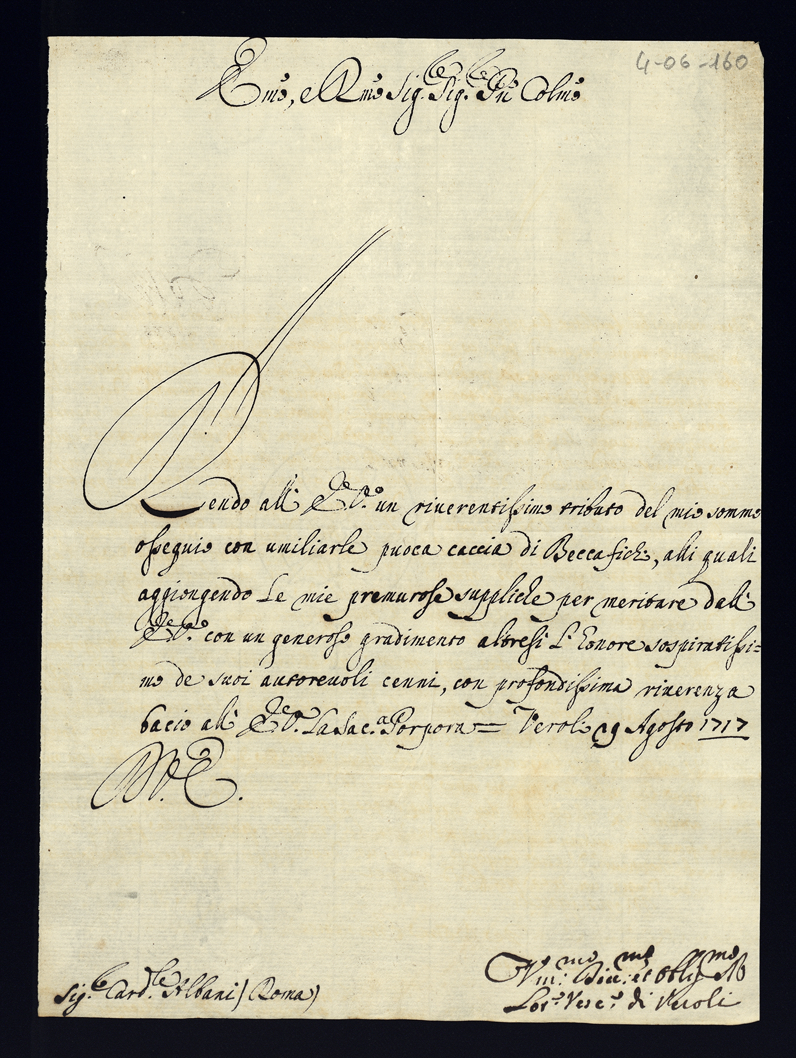 4-06-160
Emo, e Rmo Sig.re Sig.re Pne Colmo
Rendo all' E.V. un riverentissimo tributo del mio sommo
osseguio con umiliarle puoca caccia di Beccafichi, alli quali
aggiongendo Le mie premurose suppliche per meritare dall'
E.V. con un generoso gradimento altresi L'Honore sospiratissi=
mo de suoi autorevoli cenni, con profondissima riverenza
bacio all' E.V. La Sac.a Porpora = Veroli 19 Agosto 1717
Vmo. Div.mo et Obligmo
Lor.o Vesc.o di Veroli
Sig.re Card.le Albani (Roma)